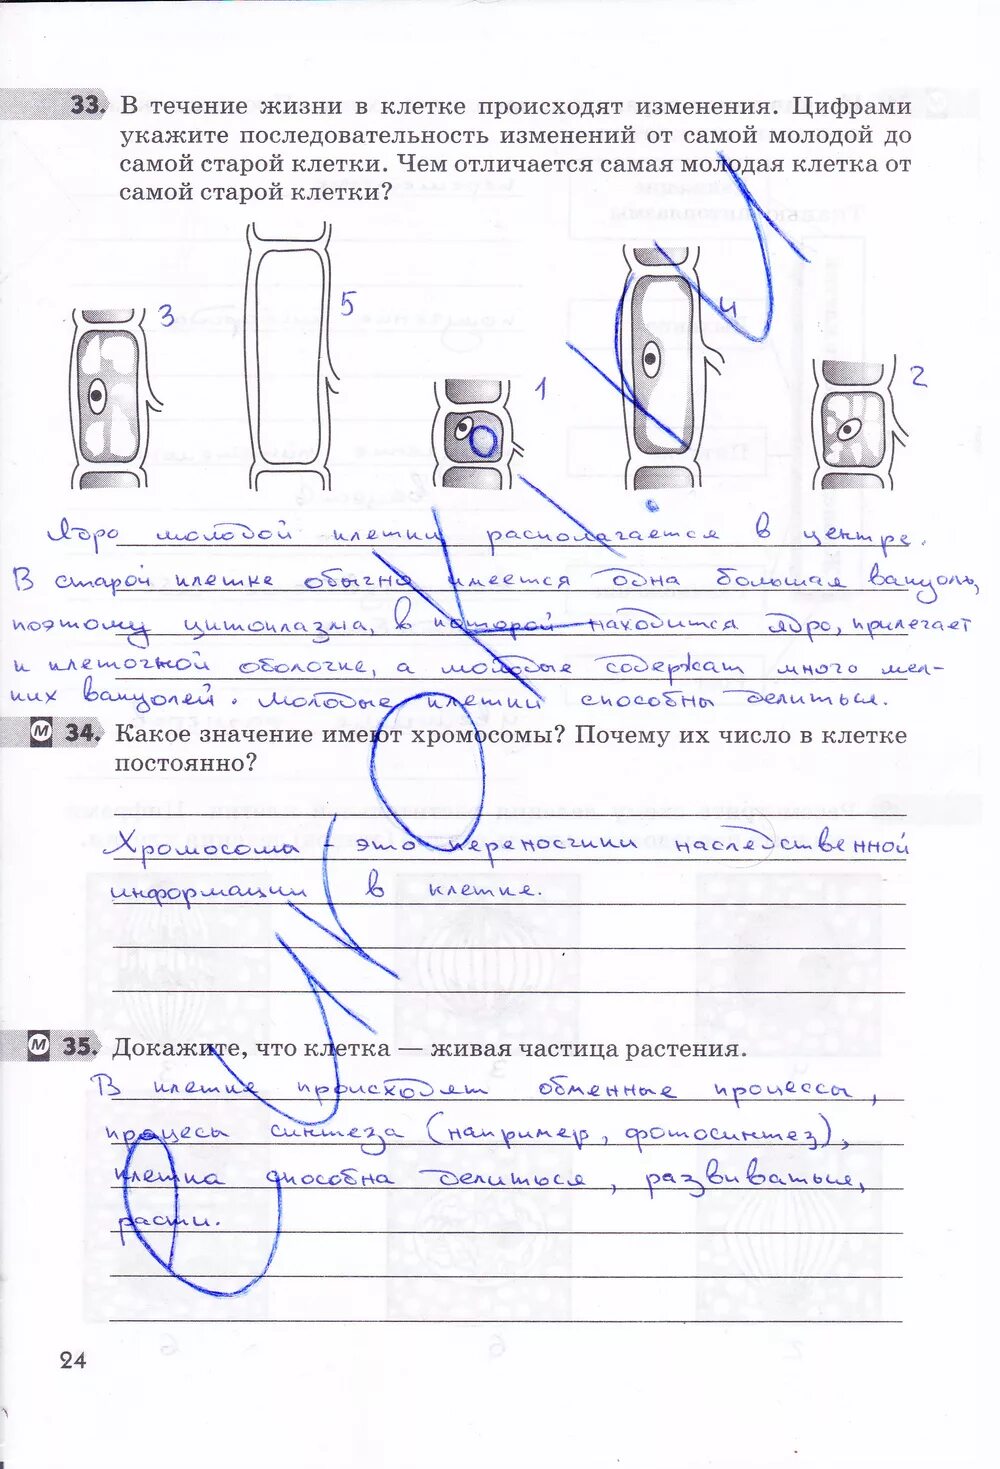 33. В течение жизни в клетке происходят изменения. Цифрами
укажите последовательность изменений от самой молодой до
самой старой клетки. Чем отличается самая молодая клетка от
самой старой клетки?
3
5
1
4
2
Ядро молодой клетки располагается в центре.
В старой клетке обычно имеется одна большая вакуоль,
поэтому цитоплазма, в которой находится ядро, прилегает
к клеточной оболочке, а молодые содержат много мел-
ких вакуолей. Молодые клетки способны делиться.
М 34. Какое значение имеют хромосомы? Почему их число в клетке
постоянно?
Хромосома - это переносчики наследственной
информации в клетке.
М 35. Докажите, что клетка — живая частица растения.
В клетке происходят обменные процессы,
процесы синтеза (например, фотосинтез),
клетка способна делиться, развиваться,
расти.
24